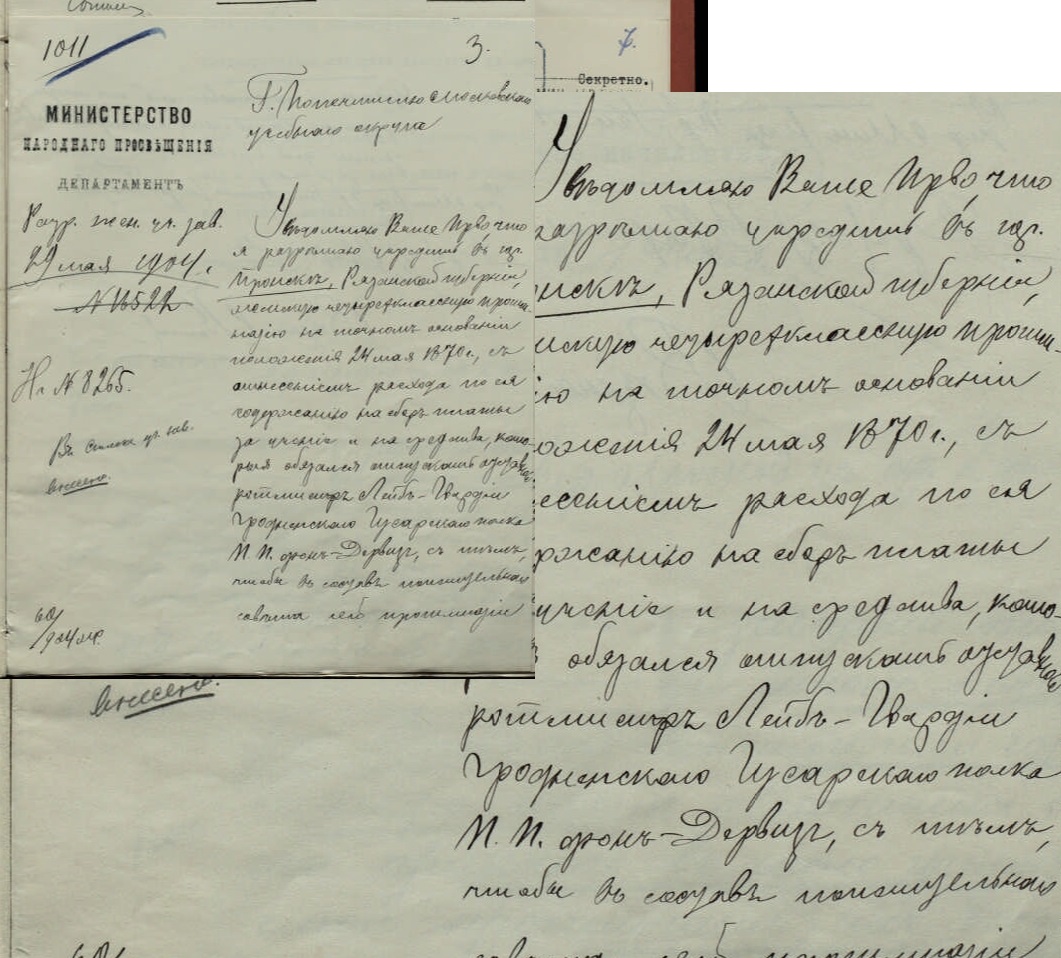 1011
3.
7.
Секретно.
МИНИСТЕРСТВО
НАРОДНАГО ПРОСВѢЩЕНІЯ
ДЕПАРТАМЕНТЪ
Разр. жен. уч. зав.
29 мая 1904 г.
№ 16522
На № 8265.
Въ списки уч. зав.
внесено.
Г. Попечителю Московскаго
учебнаго округа
Увѣдомляю Ваше Прво что
я разрѣшаю учредить въ гор.
Пронскѣ, Рязанской губерніи,
женскую четырехклассную прогим-
назію на точномъ основаніи
положенія 24 мая 1870 г., съ
отнесеніемъ расхода по ея
содержанію на сборъ платы
за ученіе и на средства, кото-
рыя обязался отпускать
ротмистръ Лейбъ-Гвардіи
Гродненскаго Гусарскаго полка
П. П. фонъ-Дервизъ, съ тѣмъ,
чтобы въ составъ попечительнаго
совѣта сей прогимназіи
Увѣдомляю Ваше Прво что
разрѣшаю учредить въ гор.
нскѣ, Рязанской губерніи,
нскую четырехклассную прогим-
ію на точномъ основаніи
оженія 24 мая 1870 г., съ
есеніемъ расхода по ея
ржанію на сборъ платы
ученіе и на средства, кото-
обязался отпускать
внесено.
ротмистръ Лейбъ-Гвардіи
Гродненскаго Гусарскаго полка
П. П. фонъ-Дервизъ, съ тѣмъ,
чтобы въ составъ попечительнаго